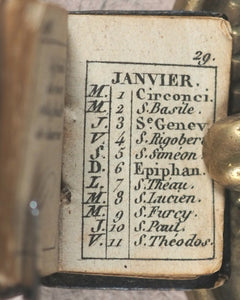 29.
JANVIER.
M. 1 Circonci.
M. 2 S. Basile.
J. 3 Se. Genev.
V. 4 S. Rigober
S. 5 S. Siméon
D. 6 Epiphan.
L. 7 S. Théau.
M. 8 S. Lucien.
M. 9 S. Furcy.
J. 10 S. Paul.
V. 11 S. Théodos.